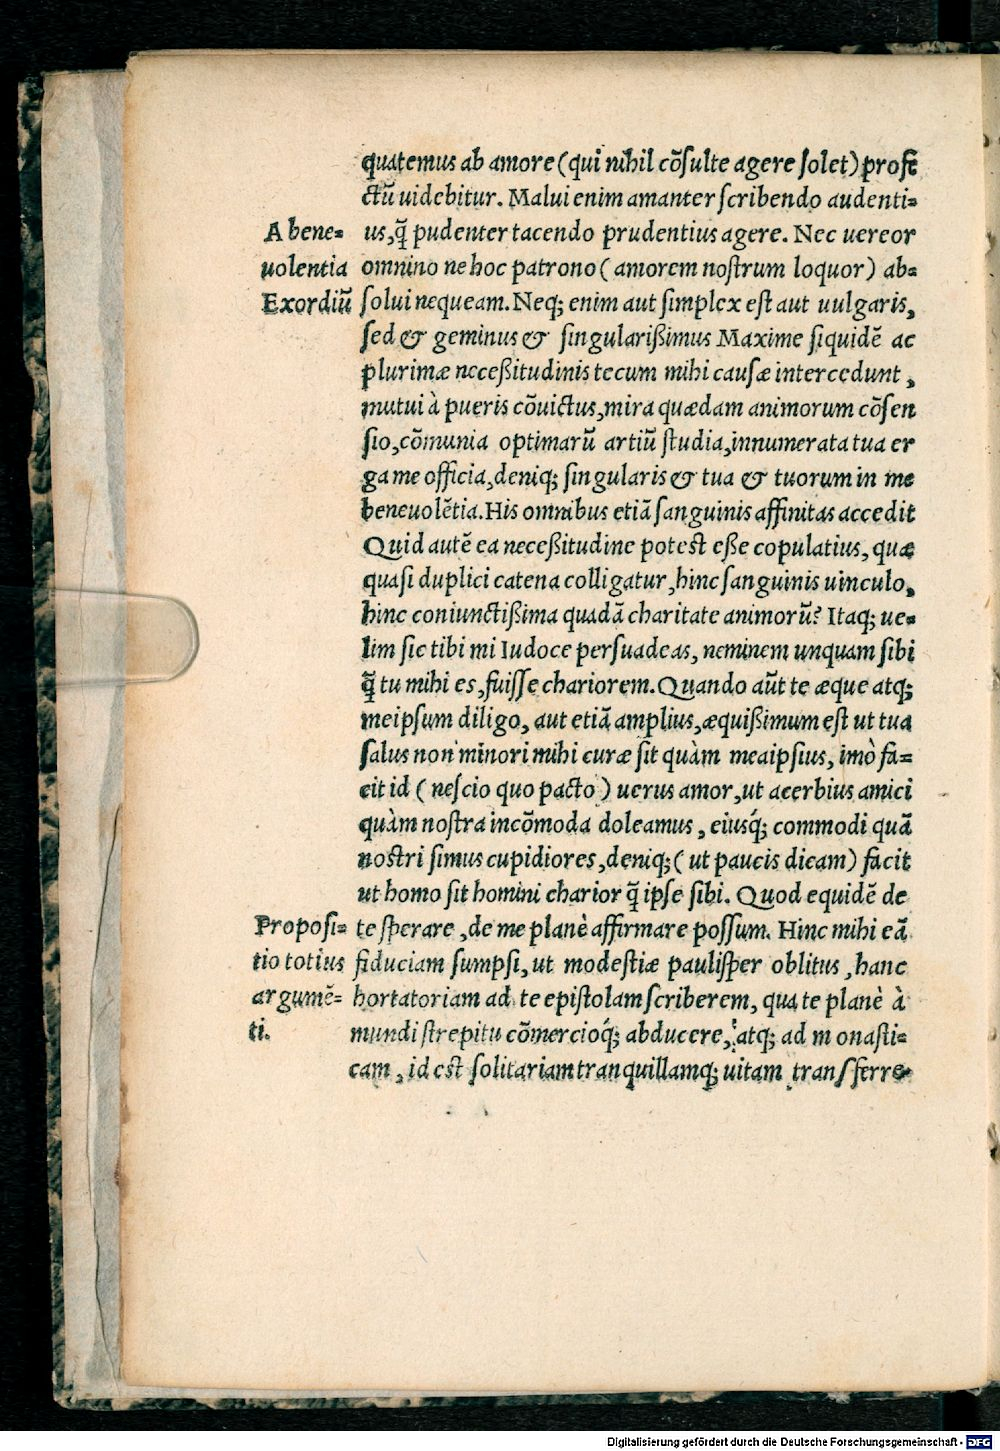 quatemus ab amore (qui nihil cõsulte agere solet) profe
ctũ uidebitur. Malui enim amanter scribendo audenti=
us, q̃ pudenter tacendo prudentius agere. Nec uereor
omnino ne hoc patrono ( amorem nostrum loquor ) ab=
solui nequeam. Neq; enim aut simplex est aut uulgaris,
sed & geminus & singularißimus Maxime siquidẽ ac
plurimæ neceßitudinis tecum mihi causæ intercedunt,
mutui à pueris cõuictus, mira quædam animorum cõsen
sio, cõmunia optimarũ artiũ studia, innumerata tua er
ga me officia, deniq; singularis & tua & tuorum in me
beneuolẽtia. His omnibus etiã sanguinis affinitas accedit
Quid autẽ ea neceßitudine potest eße copulatius, quæ
quasi duplici catena colligatur, hinc sanguinis uinculo,
hinc coniunctißima quadã charitate animorũ? Itaq; ue=
lim sic tibi mi Iudoce persuadeas, neminem unquam sibi
q̃ tu mihi es, fuisse chariorem. Quando aũt te æque atq;
meipsum diligo, aut etiã amplius, æquißimum est ut tua
salus non minori mihi curæ sit quàm meaipsius, imò fa=
cit id ( nescio quo pacto ) uerus amor, ut acerbius amici
quàm nostra incõmoda doleamus, eiusq́; commodi quã
nostri simus cupidiores, deniq; ( ut paucis dicam ) facit
ut homo sit homini charior q̃ ipse sibi. Quod equidẽ de
te sperare, de me planè affirmare possum. Hinc mihi eã
fiduciam sumpsi, ut modestiæ paulisper oblitus, hanc
hortatoriam ad te epistolam scriberem, qua te planè à
mundi strepitu cõmercioq́; abducere, atq; ad monasti=
cam, id est solitariam tranquillamq; uitam transferre.
A bene=
uolentia
Exordiũ
Proposi=
tio totius
argumẽ=
ti.
Digitalisierung gefördert durch die Deutsche Forschungsgemeinschaft - DFG